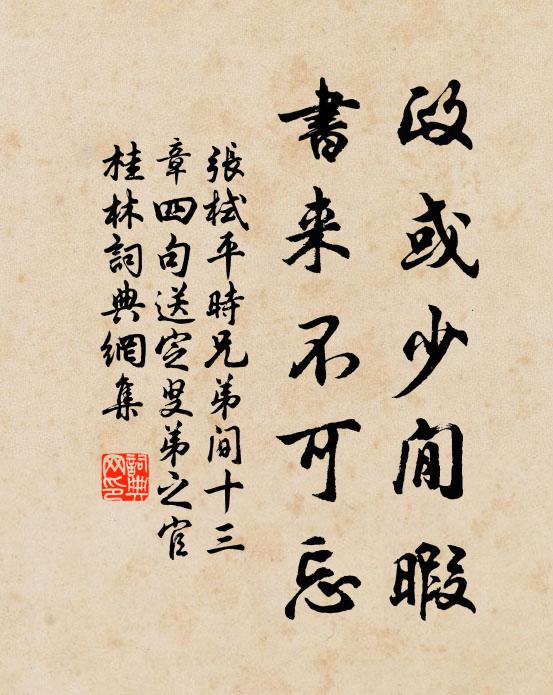 政或少閒暇
書来不可忘
張栻平時兄弟间十三
章四句送定叟弟之官
桂林詞典網集
詞典网印